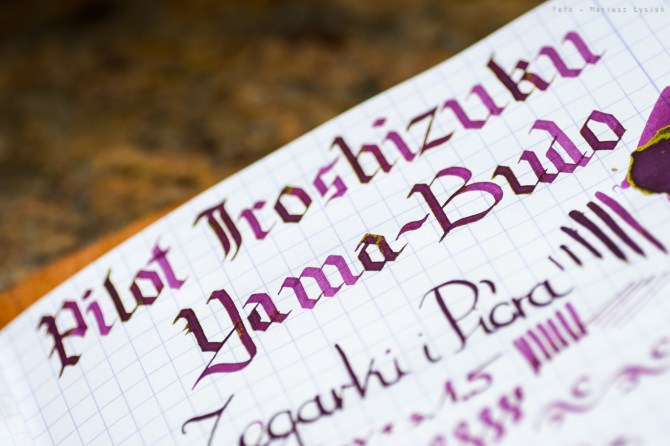 Foto - Mariusz Łysiak
Pilot Iroshizuku
Yama-Budo
Zegarki i Pióra
1.5